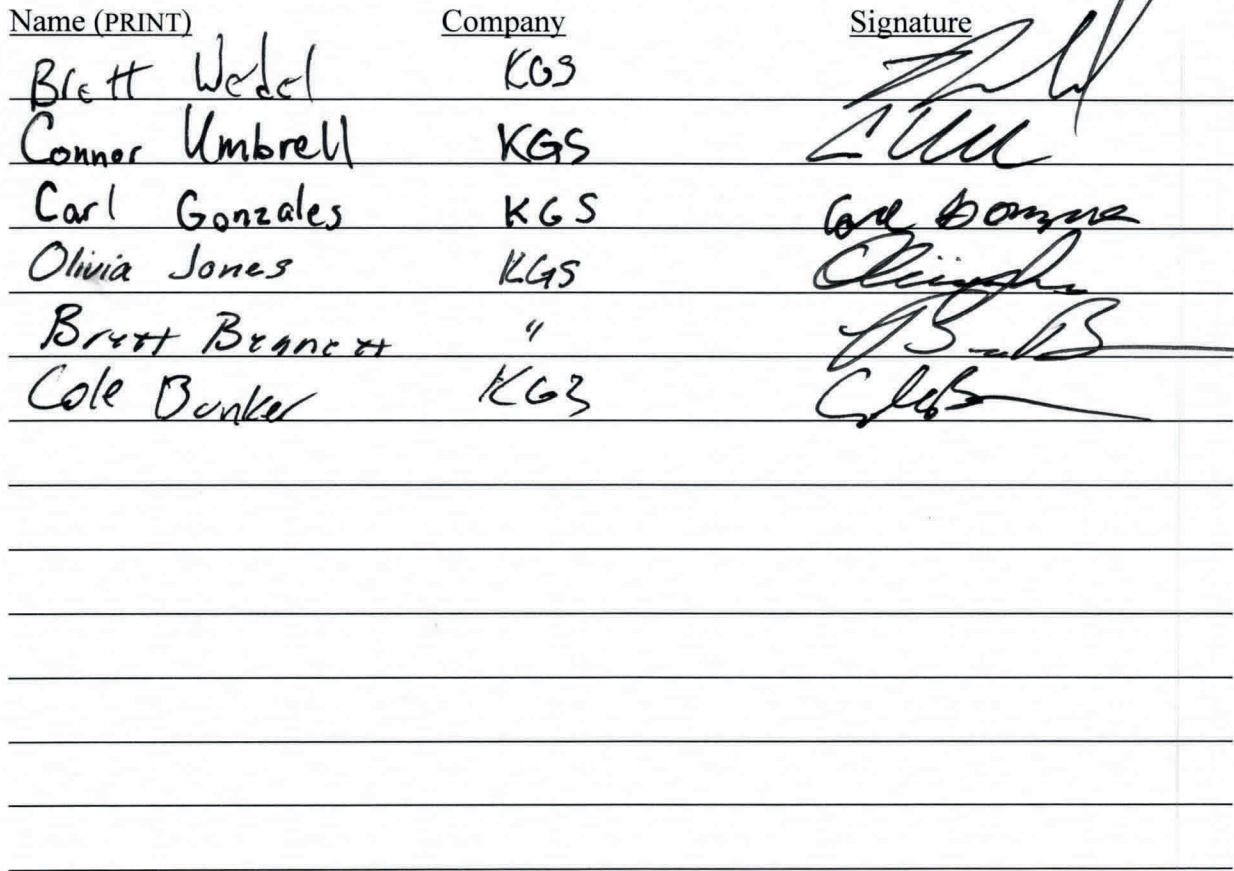 Name (PRINT) Company Signature
Brett Wedel KGS
Connor Umbrell KGS
Carl Gonzales KGS
Olivia Jones KGS
Brett Bennett "
Cole Bunker KGS